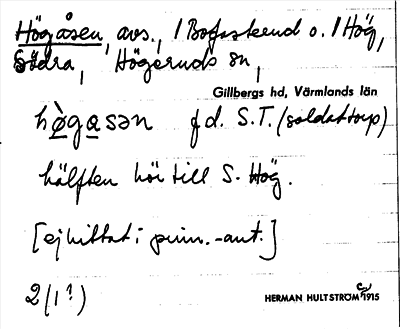 Högåsen, avs., 1 Bofasterud o. 1 Hög,
Södra, Högeruds sn,
Gillbergs hd, Värmlands län
hø̀gasən fd. S.T. (soldattorp)
hälften hör till S. Hög.
[ej hittat i prim.-ant.]
2(1?)
HERMAN HULTSTRÖM 1915